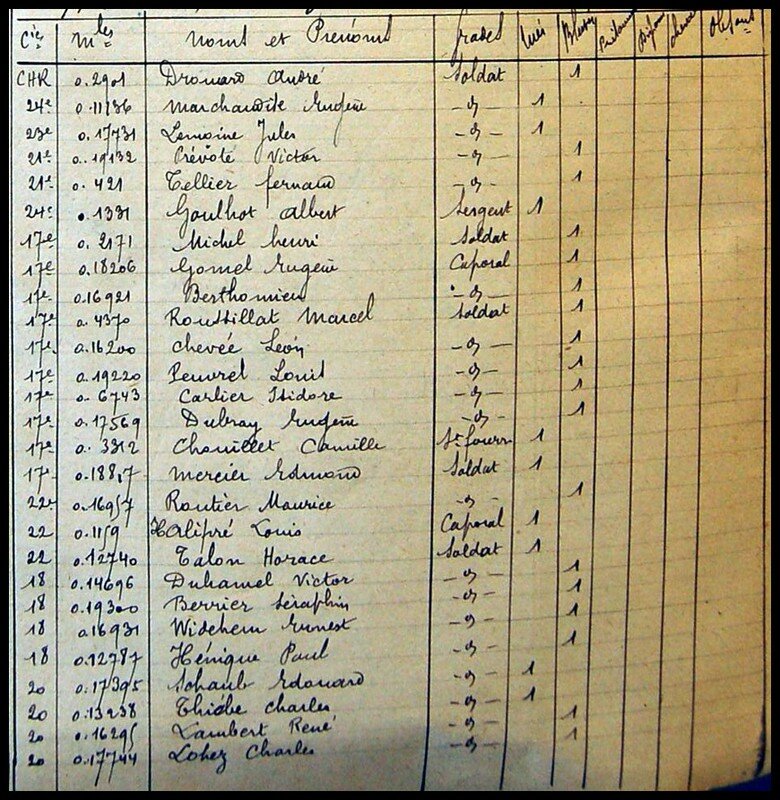 Cies Mles Noms et Prénoms Grades Tués Blessés Disparus Observ
CHR 0.2901 Drouard André Soldat 1
24e 0.11136 Marchandise Eugène -d°- 1
23e 0.17731 Lemoine Jules -d°- 1
21e 0.19132 Prévoté Victor -d°- 1
21e 0.421 Tellier fernand -d°- 1
24e 0.1331 Goulhot Albert Sergent 1
17e 0.2171 Michel henri Soldat 1
17e 0.18206 Gomel Eugène Caporal 1
17e 0.16921 Berthomieu -d°- 1
17e 0.4370 Roussillat Marcel Soldat 1
17e 0.16200 Chevée Léon -d°- 1
17e 0.19220 Peuvrel Louis -d°- 1
17e 0.6743 Carlier Isidore -d°- 1
17e 0.17569 Dubray Eugène -d°- 1
17e 0.3312 Chouillet Camille St fourr 1
17e 0.18817 Mercier Edmond Soldat 1
22e 0.16957 Routier Maurice -d°- 1
22 0.1159 Halipré Louis Caporal 1
22 0.12740 Talon Horace Soldat 1
18 0.14696 Duhamel Victor -d°- 1
18 0.19300 Berrier Séraphin -d°- 1
18 0.16931 Widehem Ernest -d°- 1
18 0.12787 Hénique Paul -d°- 1
20 0.17395 Schaub Edouard -d°- 1
20 0.13238 Thiébe Charles -d°- 1
20 0.16295 Lambert René -d°- 1
20 0.17744 Lohez Charles -d°- 1